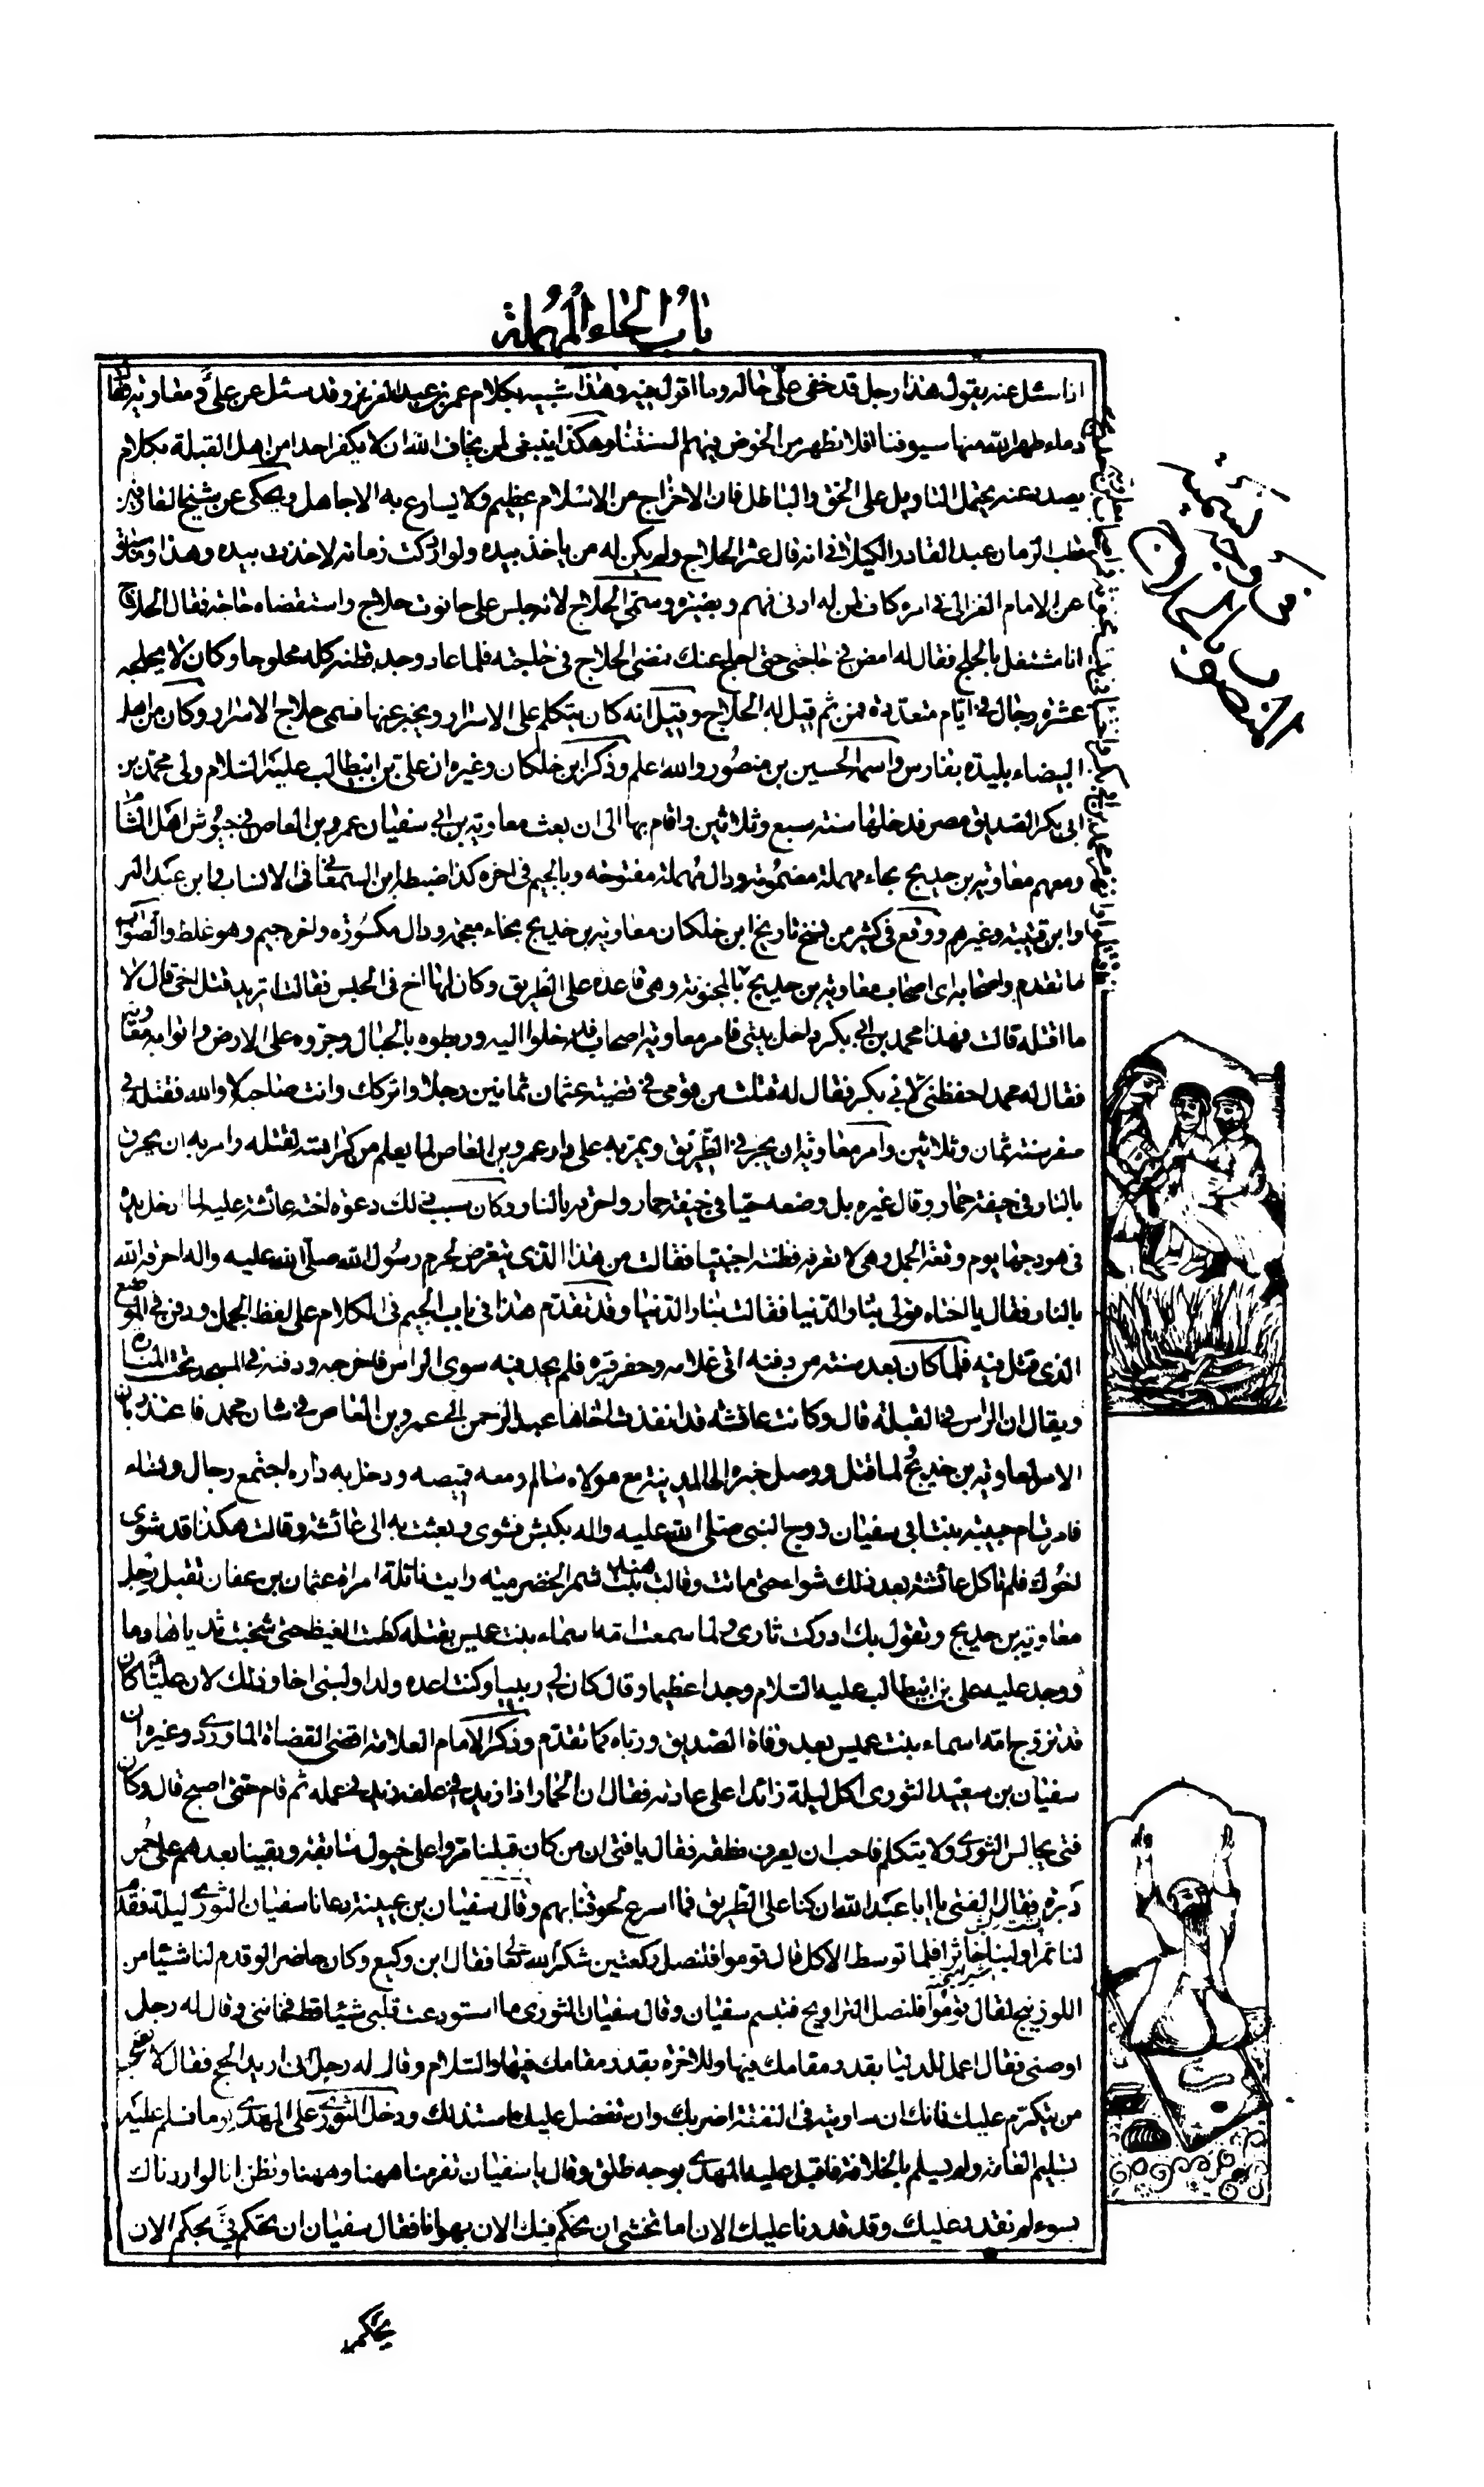 باب الحاء المهملة
اذا سئل عنه يقول هذا رجل قد خفى علىّ حاله وما اقول فيه وهذا شبيه بكلام عمر بن عبد العزيز وقد سئل عن علىّ ومعاوية فقال
دماء طهر الله منها سيوفنا افلا نطهر من الخوض فيهم السنتنا وهكذا ينبغى لمن يخاف الله ان لا يكفر احدا من اهل القبلة بكلام
يصدر عنه يحتمل التاويل على الحق والباطل فان الاخراج من الاسلام عظيم ولا يسارع به الا جاهل ويحكى عن شيخ العارفين
قطب الزمان عبد القادر الكيلانى انه قال عثر الحلاج ولم يكن له من ياخذ بيده ولو ادركت زمانه لاخذت بيده وهذا وما سبق
عن الامام الغزالى فى امره كاف لمن له ادنى فهم وبصيرة وسمى الحلاج لانه جلس على حانوت حلاج واستقضاه حاجة فقال الحلاج
انا مشتغل بالحلج فقال له امض فى حاجتى حتى احلج عنك فمضى الحلاج فى حاجته فلما عاد وجد قطنه كله محلوجا وكان لا يحلجه
عشرة رجال فى ايام متعددة فمن ثم قيل له الحلاج وقيل انه كان يتكلم على الاسرار ويخبر عنها فسمى حلاج الاسرار وكان من اهل
البيضاء بليدة بفارس واسمه الحسين بن منصور والله اعلم وذكر ابن خلكان وغيره ان على بن ابيطالب عليه السلام ولى محمد بن
ابى بكر الصديق مصر فدخلها سنة سبع وثلاثين واقام بها الى ان بعث معاوية بن ابى سفيان عمرو بن العاص فى جيوش اهل الشام
ومعهم معاوية بن حديج بحاء مهملة مضمومة ودال مهملة مفتوحة وبالجيم فى اخره كذا ضبطه ابن السمعانى فى الانساب وابن عبد البر
وابن قتيبة وغيرهم ووقع فى كثير من نسخ تاريخ ابن خلكان معاوية بن خديج بخاء معجمة ودال مكسورة واخره جيم وهو غلط والصواب
ما تقدم واصحابه اى اصحاب معاوية بن حديج بالمجنونة وهى قاعدة على الطريق وكان لها اخ فى الحبس فقالت اتريد قتل اخى قال لا
ما اقتله قالت فهذا محمد بن ابى بكر داخل بيتى فامر معاوية اصحابه فدخلوا اليه وربطوه بالحبال وجروه على الارض واتوا به معاوية
فقال له محمد احفظنى لابى بكر فقال له قتلت من قومى فى قضية عثمان ثمانين رجلا واتركك وانت صاحبه لا والله فقتله فى
صفر سنة ثمان وثلاثين وامر معاوية ان يجر فى الطريق ويمر به على دار عمرو بن العاص لما يعلم من كراهته لقتله وامر به ان يحرق
بالنار فى جيفة حمار وقال غيره بل وضعه حيا فى جيفة حمار واحرقه بالنار وكان سبب ذلك دعوة اخته عائشة عليه لما ادخل يده
فى هودجها يوم وقعة الجمل وهى لا تعرفه فظنته اجنبيا فقالت من هذا الذى يتعرض لحرم رسول الله صلى الله عليه واله احرقه الله
بالنار فقال يا اختاه قولى بنار الدنيا فقالت بنار الدنيا وقد تقدم هذا فى باب الجيم فى الكلام على لفظ الجمل ودفن فى الموضع
الذى قتل فيه فلما كان بعد سنة من دفنه اتى غلامه وحفر قبره فلم يجد فيه سوى الراس فاخرجه ودفنه فى المسجد تحت المنارة
ويقال ان الراس فى القبلة قال وكانت عائشة قد انفذت اخاها عبد الرحمن الى عمرو بن العاص فى شان محمد فاعتذر بان
الامر لمعاوية بن خديج لما قتل ووصل خبره الى المدينة مع مولاه سالم ومعه قميصه ودخل به داره اجتمع رجال ونساء
فامرت ام حبيبة بنت ابى سفيان زوج النبى صلى الله عليه واله بكبش فشوى وبعثت به الى عائشة وقالت هكذا قد شوى
اخوك فلم تاكل عائشة بعد ذلك شواء حتى ماتت وقالت هند بنت شمر الحضرمية رايت نائلة امراة عثمان بن عفان تقبل رجل
معاوية بن حديج وتقول بك ادركت ثارى ولما سمعت امه اسماء بنت عميس بقتله كظمت الغيظ حتى شخبت ثدياها دما
ووجد عليه على بن ابيطالب عليه السلام وجدا عظيما وقال كان لى ربيبا وكنت اعده ولدا ولبنى اخا وذلك لان عليا كان
قد تزوج امه اسماء بنت عميس بعد وفاة الصديق ورباه كما تقدم وذكر الامام العلامة اقضى القضاة الماوردى وغيره ان
سفيان بن سعيد الثورى اكل ليلة زائدا على عادته فقال ان الحمار اذا زيد فى علفه زيد فى عمله ثم قام حتى اصبح قال وكان
فتى يجالس الثورى ولا يتكلم فاحب ان يعرف نطقه فقال يا فتى ان من كان قبلنا مروا على خيول سابقة وبقينا بعدهم على حمر
دبرة فقال الفتى يا ابا عبد الله ان كنا على الطريق فما اسرع لحوقنا بهم وقال سفيان بن عيينة دعانا سفيان الثورى ليلة فقدم
لنا تمرا ولبنا خاثرا فلما توسط الاكل قال قوموا فلنصل ركعتين شكرا لله تعالى فقال ابن وكيع وكان حاضرا لو قدم لنا شيئا من
اللوزينج لقال قوموا فلنصل التراويح فتبسم سفيان وقال سفيان الثورى ما استودعت قلبى شيئا قط فخاننى وقال له رجل
اوصنى فقال اعمل للدنيا بقدر مقامك فيها وللاخرة بقدر مقامك فيها والسلام وقال له رجل انى اريد الحج فقال لا تصحب
من يتكرم عليك فانك ان ساويته فى النفقة اضر بك وان تفضل عليك استذلك ودخل الثورى على المهدى يوما فسلم عليه
تسليم العامة ولم يسلم بالخلافة فاقبل عليه المهدى بوجه طلق وقال يا سفيان تفر منا ههنا وههنا وتظن انا لو اردناك
بسوء لم نقدر عليك وقد قدرنا عليك الان اما تخشى ان نحكم فيك الان بهوانا فقال سفيان ان تحكم فىّ يحكم الان
يحكم